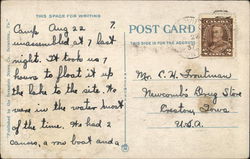 THIS SPACE FOR WRITING
Camp Aug 22
unassembled at 7 last
night. It took us 7
hours to float it up
the lake to the site. We
were in the water most
of the time. We had 2
canoes, a row boat and a
POST CARD
THIS SIDE IS FOR THE ADDRESS
Mr. C. H. Troutman
Newcomb's Drug Store
Creston, Iowa
U.S.A.